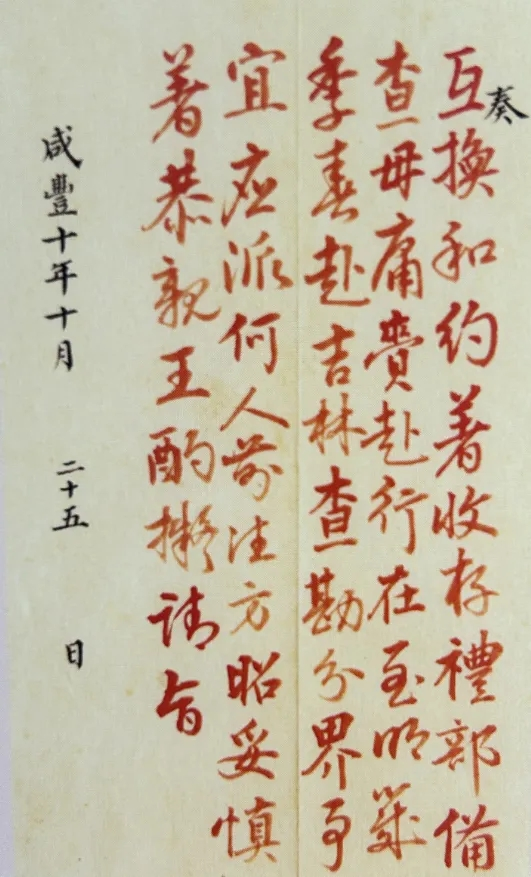 奏
互換和約著收存禮部備
查毋庸賫赴行在至明歲
季春赴吉林查勘分界事
宜应派何人前往方昭妥慎
著恭親王酌擬請旨
咸豐十年十月 二十五 日